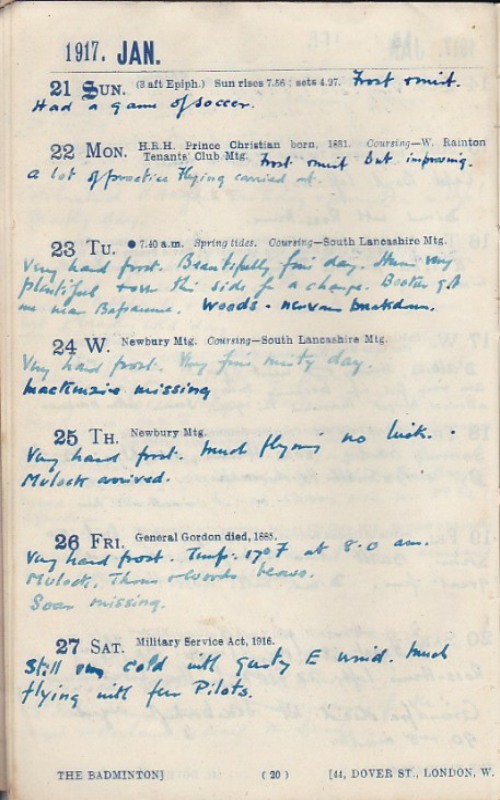 1917. JAN.
21 SUN. (3 aft Epiph.) Sun rises 7.56; sets 4.27. Frost &
Had a game of soccer.
22 MON. H.R.H. Prince Christian born, 1831. Coursing—W. Rainton
Tenants' Club Mtg. Frost & but improving.
A lot of practice flying carried out.
23 TU. ● 7.40 a.m. Spring tides. Coursing—South Lancashire Mtg.
Very hard frost. Beautifully fine day. Huns very
plentiful & over this side for a change. Booker got
one near Bapaume. Woods - nervous breakdown.
24 W. Newbury Mtg. Coursing—South Lancashire Mtg.
Very hard frost. Very fine misty day.
Mackenzie missing
25 TH. Newbury Mtg.
Very hard frost. Much flying no luck.
Mulock arrived.
26 FRI. General Gordon died, 1885.
Very hard frost. Temp. 17° F at 8.0 am.
Mulock, Thom & Woods leaves.
Soar missing.
27 SAT. Military Service Act, 1916.
Still very cold with gusty E wind. Much
flying with few Pilots.
THE BADMINTON] (20) [44, DOVER ST., LONDON, W.